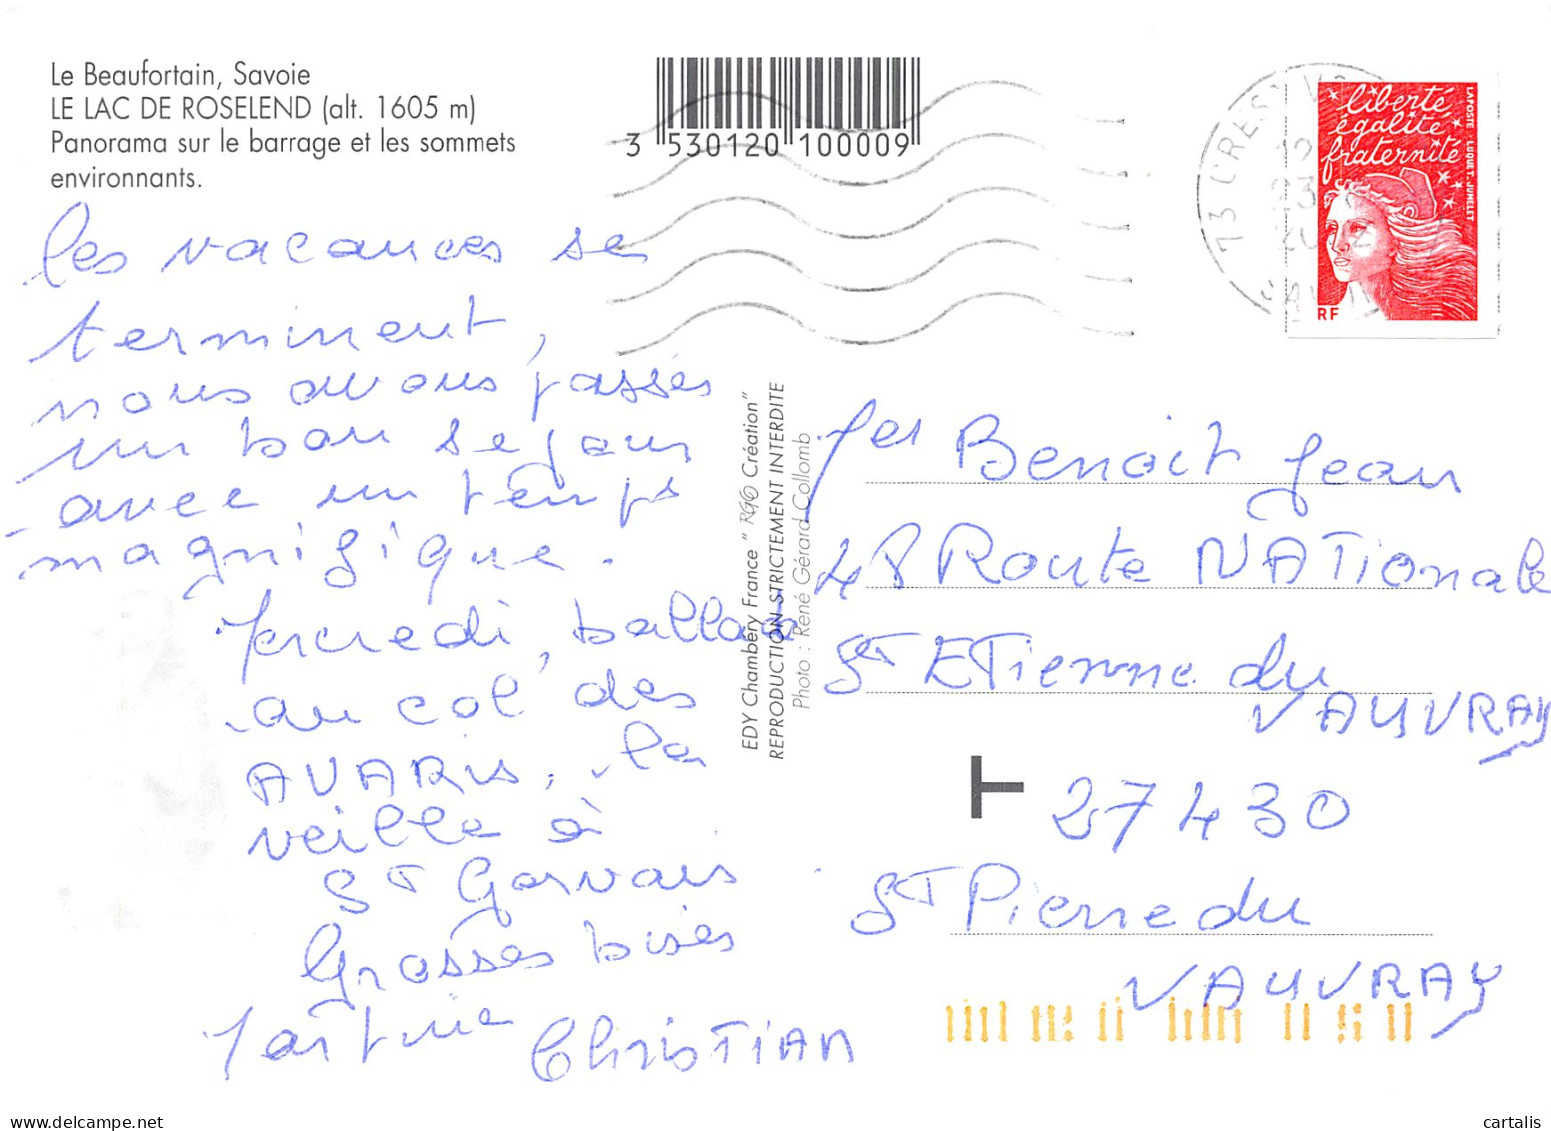 Le Beaufortain, Savoie
LE LAC DE ROSELEND (alt. 1605 m)
Panorama sur le barrage et les sommets
environnants.
3 530120 100009
les vacances se
terminent,
nous avons passés
un bon sejour
avec un temps
magnifique.
Mercredi, ballade
au col des
AVARIS, la
veille à
ST Gervais
Grosses bises
Martine Christian
EDY Chambéry France " RGC Création"
REPRODUCTION STRICTEMENT INTERDITE
Photo : René Gérard Collomb
73
liberté
égalité
fraternité
LA POSTE LUQUET-JUMELET
RF
Benoit Jean
48 Route NATionale
ST ETienne du
VAUVRAY
T
27430
ST Pierre du
VAUVRAY
cartalis